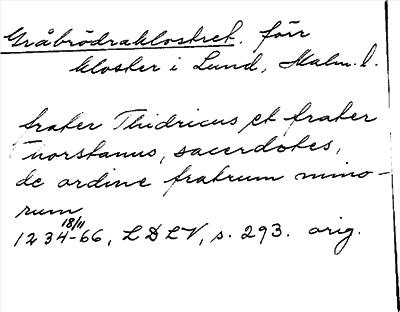 Gråbrödraklostret. förr
kloster i Lund, Malm. l.
frater Thidricus et frater
Thorstanus, sacerdotes,
de ordine fratrum mino-
rum
18/11
1234-66, LDLV, s. 293. orig.